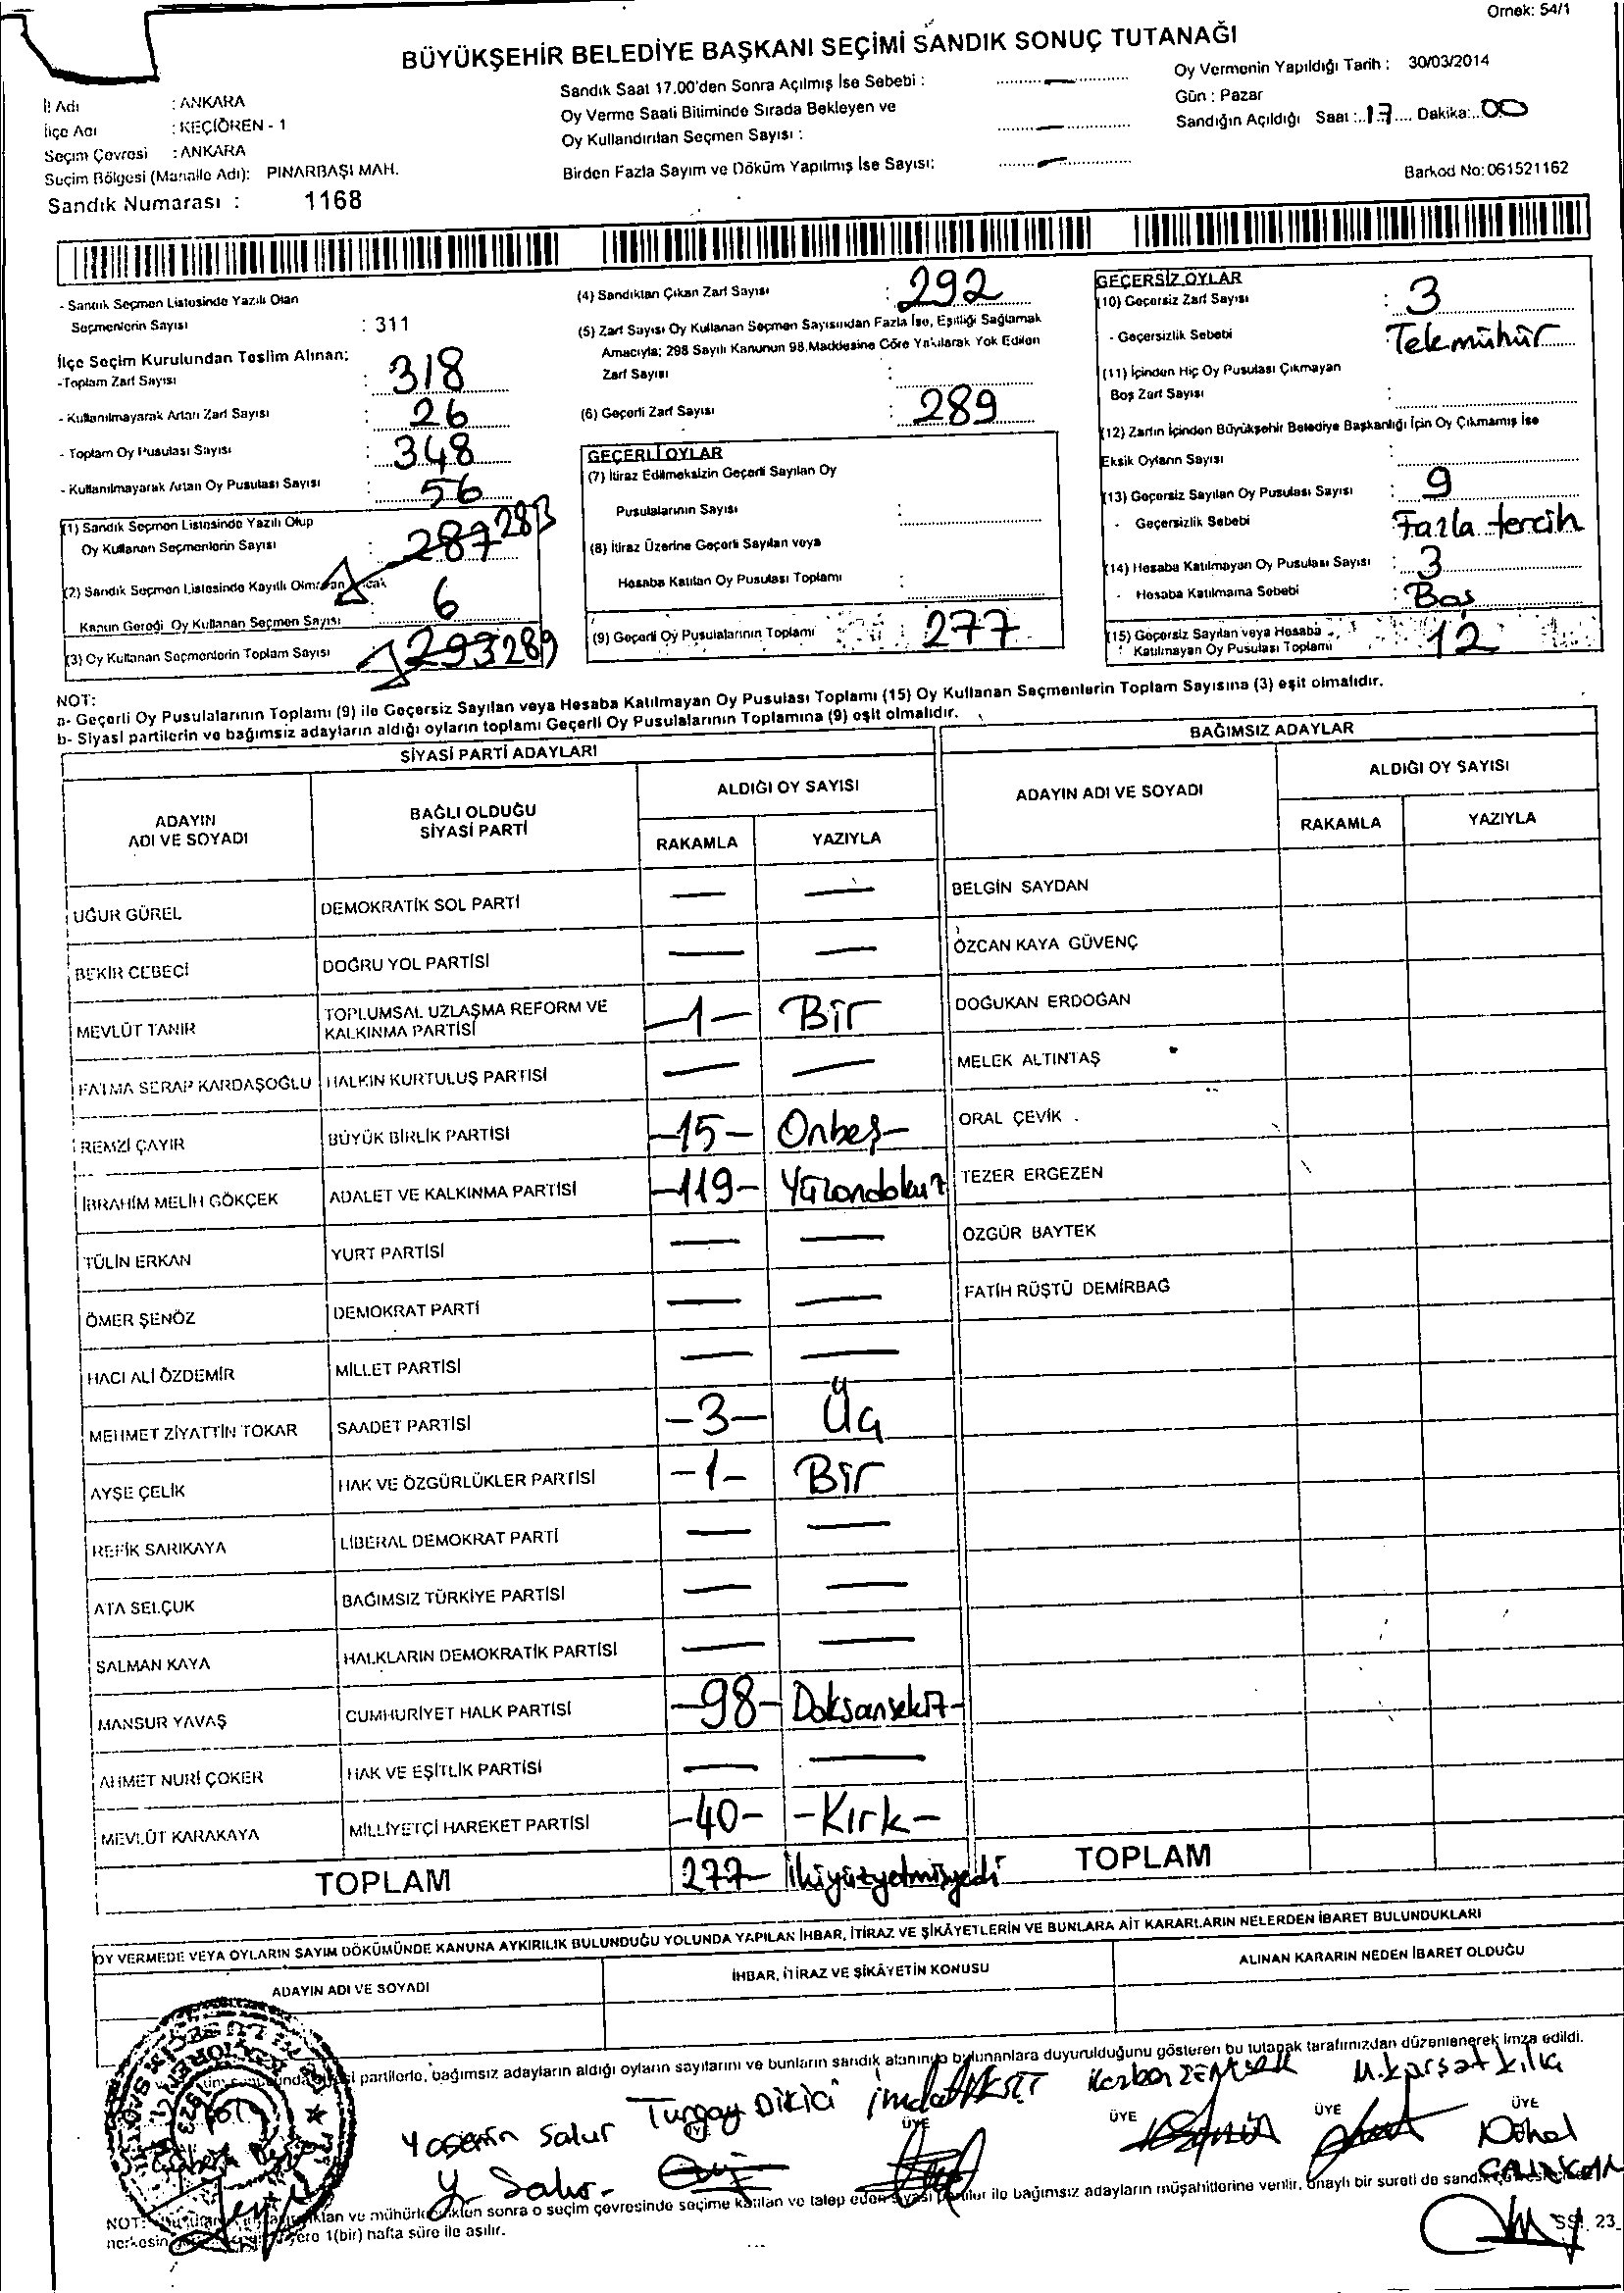 Örnek: 54/1
BÜYÜKŞEHİR BELEDİYE BAŞKANI SEÇİMİ SANDIK SONUÇ TUTANAĞI
İl Adı : ANKARA
İlçe Adı : KEÇİÖREN - 1
Seçim Çevresi : ANKARA
Seçim Bölgesi (Mahalle Adı): PINARBAŞI MAH.
Sandık Numarası : 1168
Sandık Saat 17.00'den Sonra Açılmış İse Sebebi : —
Oy Verme Saati Bitiminde Sırada Bekleyen ve
Oy Kullandırılan Seçmen Sayısı : —
Birden Fazla Sayım ve Döküm Yapılmış İse Sayısı: —
Oy Vermenin Yapıldığı Tarih : 30/03/2014
Gün : Pazar
Sandığın Açıldığı Saat : 17 Dakika: 00
Barkod No: 061521162
- Sandık Seçmen Listesinde Yazılı Olan
Seçmenlerin Sayısı : 311
İlçe Seçim Kurulundan Teslim Alınan;
-Toplam Zarf Sayısı : 318
- Kullanılmayarak Artan Zarf Sayısı : 26
- Toplam Oy Pusulası Sayısı : 348
- Kullanılmayarak Artan Oy Pusulası Sayısı : 56
(1) Sandık Seçmen Listesinde Yazılı Olup
Oy Kullanan Seçmenlerin Sayısı : 287 283
(2) Sandık Seçmen Listesinde Kayıtlı
Kanun Gereği Oy Kullanan Seçmen Sayısı : 6
(3) Oy Kullanan Seçmenlerin Toplam Sayısı 293 289
(4) Sandıktan Çıkan Zarf Sayısı : 292
(5) Zarf Sayısı Oy Kullanan Seçmen Sayısından Fazla İse, Eşitliği Sağlamak
Amacıyla; 298 Sayılı Kanunun 98.Maddesine Göre Yakılarak Yok Edilen
Zarf Sayısı :
(6) Geçerli Zarf Sayısı : 289
GEÇERLİ OYLAR
(7) İtiraz Edilmeksizin Geçerli Sayılan Oy
Pusulalarının Sayısı :
(8) İtiraz Üzerine Geçerli Sayılan veya
Hesaba Katılan Oy Pusulası Toplamı :
(9) Geçerli Oy Pusulalarının Toplamı : 277
GEÇERSİZ OYLAR
(10) Geçersiz Zarf Sayısı : 3
- Geçersizlik Sebebi : Tek mühür
(11) İçinden Hiç Oy Pusulası Çıkmayan
Boş Zarf Sayısı :
(12) Zarfın İçinden Büyükşehir Belediye Başkanlığı İçin Oy Çıkmamış İse
Eksik Oyların Sayısı :
(13) Geçersiz Sayılan Oy Pusulası Sayısı : 9
- Geçersizlik Sebebi : Fazla tercih
(14) Hesaba Katılmayan Oy Pusulası Sayısı : 3
- Hesaba Katılmama Sebebi : Boş
(15) Geçersiz Sayılan veya Hesaba
Katılmayan Oy Pusulası Toplamı : 12
NOT:
a- Geçerli Oy Pusulalarının Toplamı (9) ile Geçersiz Sayılan veya Hesaba Katılmayan Oy Pusulası Toplamı (15) Oy Kullanan Seçmenlerin Toplam Sayısına (3) eşit olmalıdır.
b- Siyasi partilerin ve bağımsız adayların aldığı oyların toplamı Geçerli Oy Pusulalarının Toplamına (9) eşit olmalıdır.
SİYASİ PARTİ ADAYLARI
BAĞIMSIZ ADAYLAR
ADAYIN ADI VE SOYADI
BAĞLI OLDUĞU SİYASİ PARTİ
ALDIĞI OY SAYISI
RAKAMLA YAZIYLA
ADAYIN ADI VE SOYADI
ALDIĞI OY SAYISI
RAKAMLA YAZIYLA
UĞUR GÜREL DEMOKRATİK SOL PARTİ — — BELGİN SAYDAN
BEKİR CEBECİ DOĞRU YOL PARTİSİ — — ÖZCAN KAYA GÜVENÇ
MEVLÜT TANIR TOPLUMSAL UZLAŞMA REFORM VE KALKINMA PARTİSİ -1- Bir DOĞUKAN ERDOĞAN
FATMA SERAP KARDAŞOĞLU HALKIN KURTULUŞ PARTİSİ — — MELEK ALTINTAŞ
REMZİ ÇAYIR BÜYÜK BİRLİK PARTİSİ -15- Onbeş- ORAL ÇEVİK
İBRAHİM MELİH GÖKÇEK ADALET VE KALKINMA PARTİSİ -119- Yüzondokuz TEZER ERGEZEN
TÜLİN ERKAN YURT PARTİSİ — — ÖZGÜR BAYTEK
ÖMER ŞENÖZ DEMOKRAT PARTİ — — FATİH RÜŞTÜ DEMİRBAĞ
HACI ALİ ÖZDEMİR MİLLET PARTİSİ — —
MEHMET ZİYATTİN TOKAR SAADET PARTİSİ -3- Üç
AYŞE ÇELİK HAK VE ÖZGÜRLÜKLER PARTİSİ -1- Bir
REFİK SARIKAYA LİBERAL DEMOKRAT PARTİ — —
ATA SELÇUK BAĞIMSIZ TÜRKİYE PARTİSİ — —
SALMAN KAYA HALKLARIN DEMOKRATİK PARTİSİ — —
MANSUR YAVAŞ CUMHURİYET HALK PARTİSİ -98- Doksansekiz-
AHMET NURİ ÇOKER HAK VE EŞİTLİK PARTİSİ — —
MEVLÜT KARAKAYA MİLLİYETÇİ HAREKET PARTİSİ -40- -Kırk-
TOPLAM 277- İkiyüzyetmişyedi TOPLAM
OY VERMEDE VEYA OYLARIN SAYIM DÖKÜMÜNDE KANUNA AYKIRILIK BULUNDUĞU YOLUNDA YAPILAN İHBAR, İTİRAZ VE ŞİKÂYETLERİN VE BUNLARA AİT KARARLARIN NELERDEN İBARET BULUNDUKLARI
ADAYIN ADI VE SOYADI İHBAR, İTİRAZ VE ŞİKÂYETİN KONUSU ALINAN KARARIN NEDEN İBARET OLDUĞU
partilerle, bağımsız adayların aldığı oyların sayılarını ve bunların sandık alanında bulunanlara duyurulduğunu gösteren bu tutanak tarafımızdan düzenlenerek imza edildi.
Yasemin Salur Turgay Dikici İmdat
ÜYE ÜYE ÜYE ÜYE
Y. Salur
NOT: ve mühürlendikten sonra o seçim çevresinde seçime katılan ve talep eden siyasi partiler ile bağımsız adayların müşahitlerine verilir, onaylı bir sureti de
1(bir) hafta süre ile asılır.